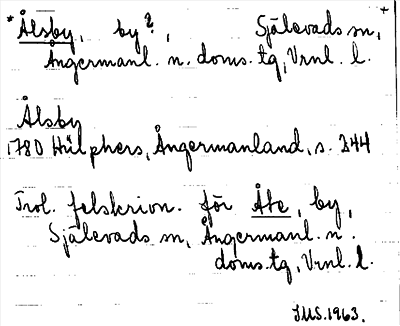 * Ålsby, by?, Själevads sn,
Ångermanl. n. doms.tg, Vrnl. l.
Ålsby
1780 Hülphers, Ångermanland, s. 244
Trol. felskrivn. för Åte, by,
Själevads sn, Ångermanl. n.
doms.tg, Vrnl. l.
IMS. 1963.